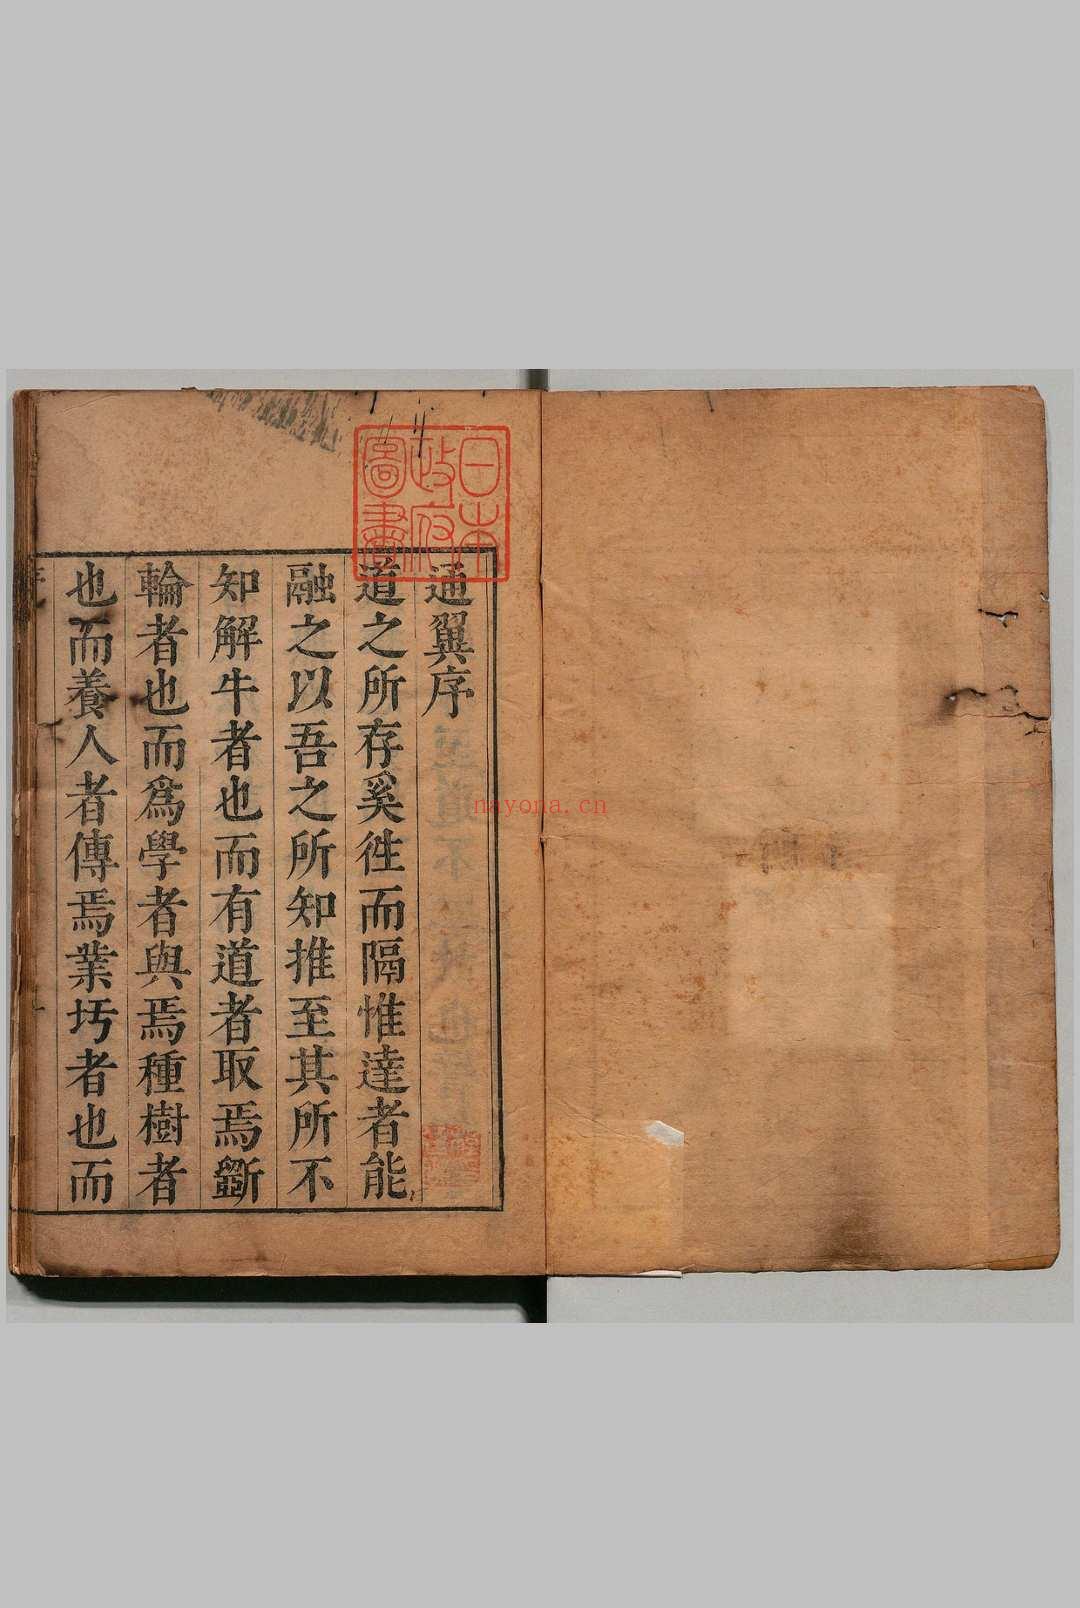 通翼序
道之所存奚徃而隔惟達者能
融之以吾之所知推至其所不
知解牛者也而有道者取焉斵
輪者也而爲學者與焉種樹者
也而養人者傳焉業圬者也而
日本
政府
圖書
nayona.cn